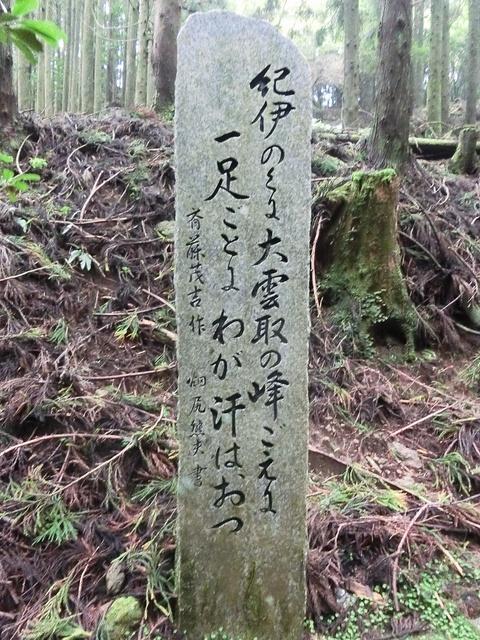 紀伊のくに大雲取の峰ごえに
一足ごとにわが汗はおつ
斉藤茂吉作 畑尻継夫 書